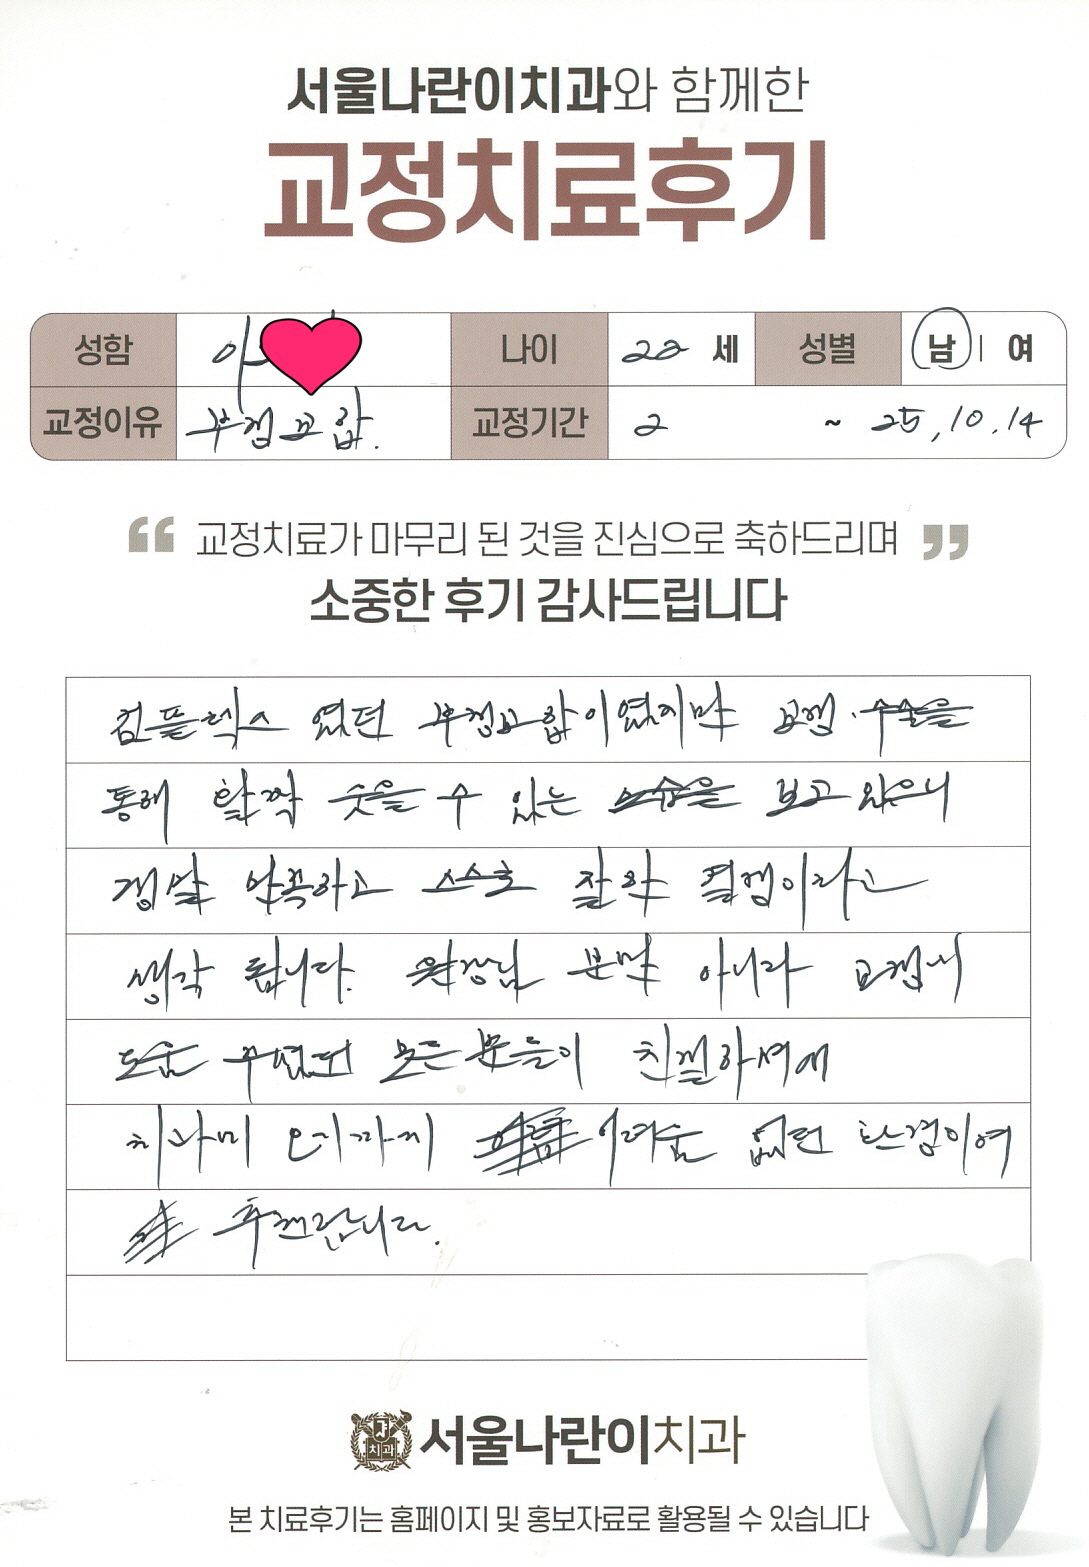 서울나란이치과와 함께한
교정치료후기
성함 이 나이 22 세 성별 남 | 여
교정이유 부정교합. 교정기간 2 ~ 25, 10. 14
“ 교정치료가 마무리 된 것을 진심으로 축하드리며 ”
소중한 후기 감사드립니다
컴플렉스 였던 부정교합이였지만 교정 수술을
통해 활짝 웃을 수 있는 모습을 보고 있으니
정말 만족하고 스스로 잘한 결정이라고
생각 됩니다. 원장님 뿐만 아니라 교정시
도움 주셨던 모든 분들이 친절하셔서
치과에 오기까지 어려움 없던 환경이여
추천드립니다.
치과
서울나란이치과
본 치료후기는 홈페이지 및 홍보자료로 활용될 수 있습니다